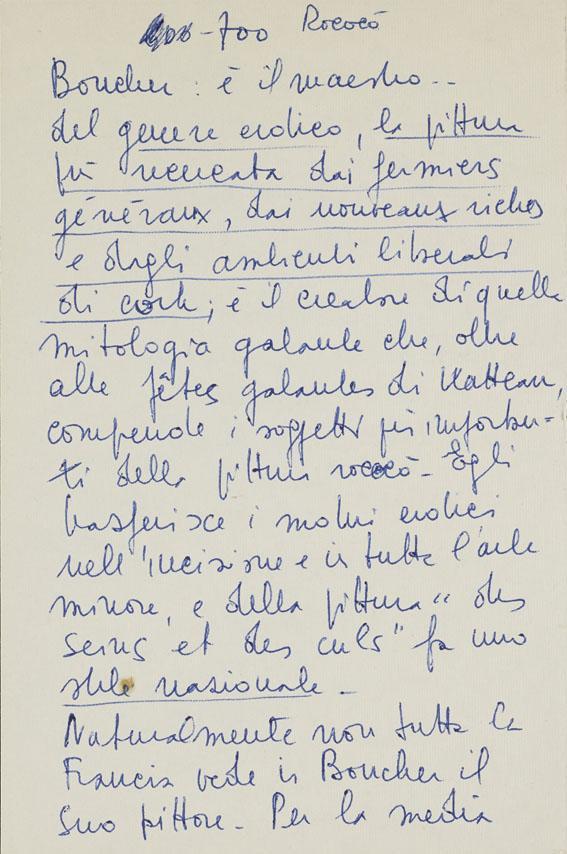 -700 Rococò
Boucher: è il maestro --
del genere erotico, la pittura
più ricercata dai fermiers
généraux, dai nouveaux riches
e dagli ambienti liberali
di corte; è il creatore di quella
mitologia galante che, oltre
alle fêtes galantes di Watteau,
comprende i soggetti più importan-
ti della pittura rococò - Egli
trasferisce i motivi erotici
nell'incisione e in tutta l'arte
minore, e della pittura "des
seins et des culs" fa uno
stile nazionale -
Naturalmente non tutta la
Francia vede in Boucher il
suo pittore - Per la media